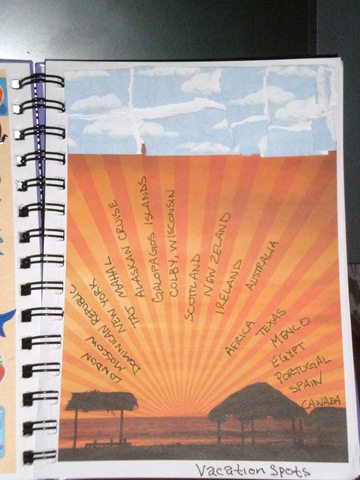 LONDON
MOSCOW
DOMINICAN REPUBLIC
NEW YORK
TAJ MAHAL
ALASKAN CRUISE
GALOPAGOS ISLANDS
COLBY, WISCONSIN
SCOTLAND
NEW ZELAND
IRELAND
AUSTRALIA
AFRICA
TEXAS
MEXICO
EGYPT
PORTUGIAL
SPAIN
CANADA
Vacation Spots